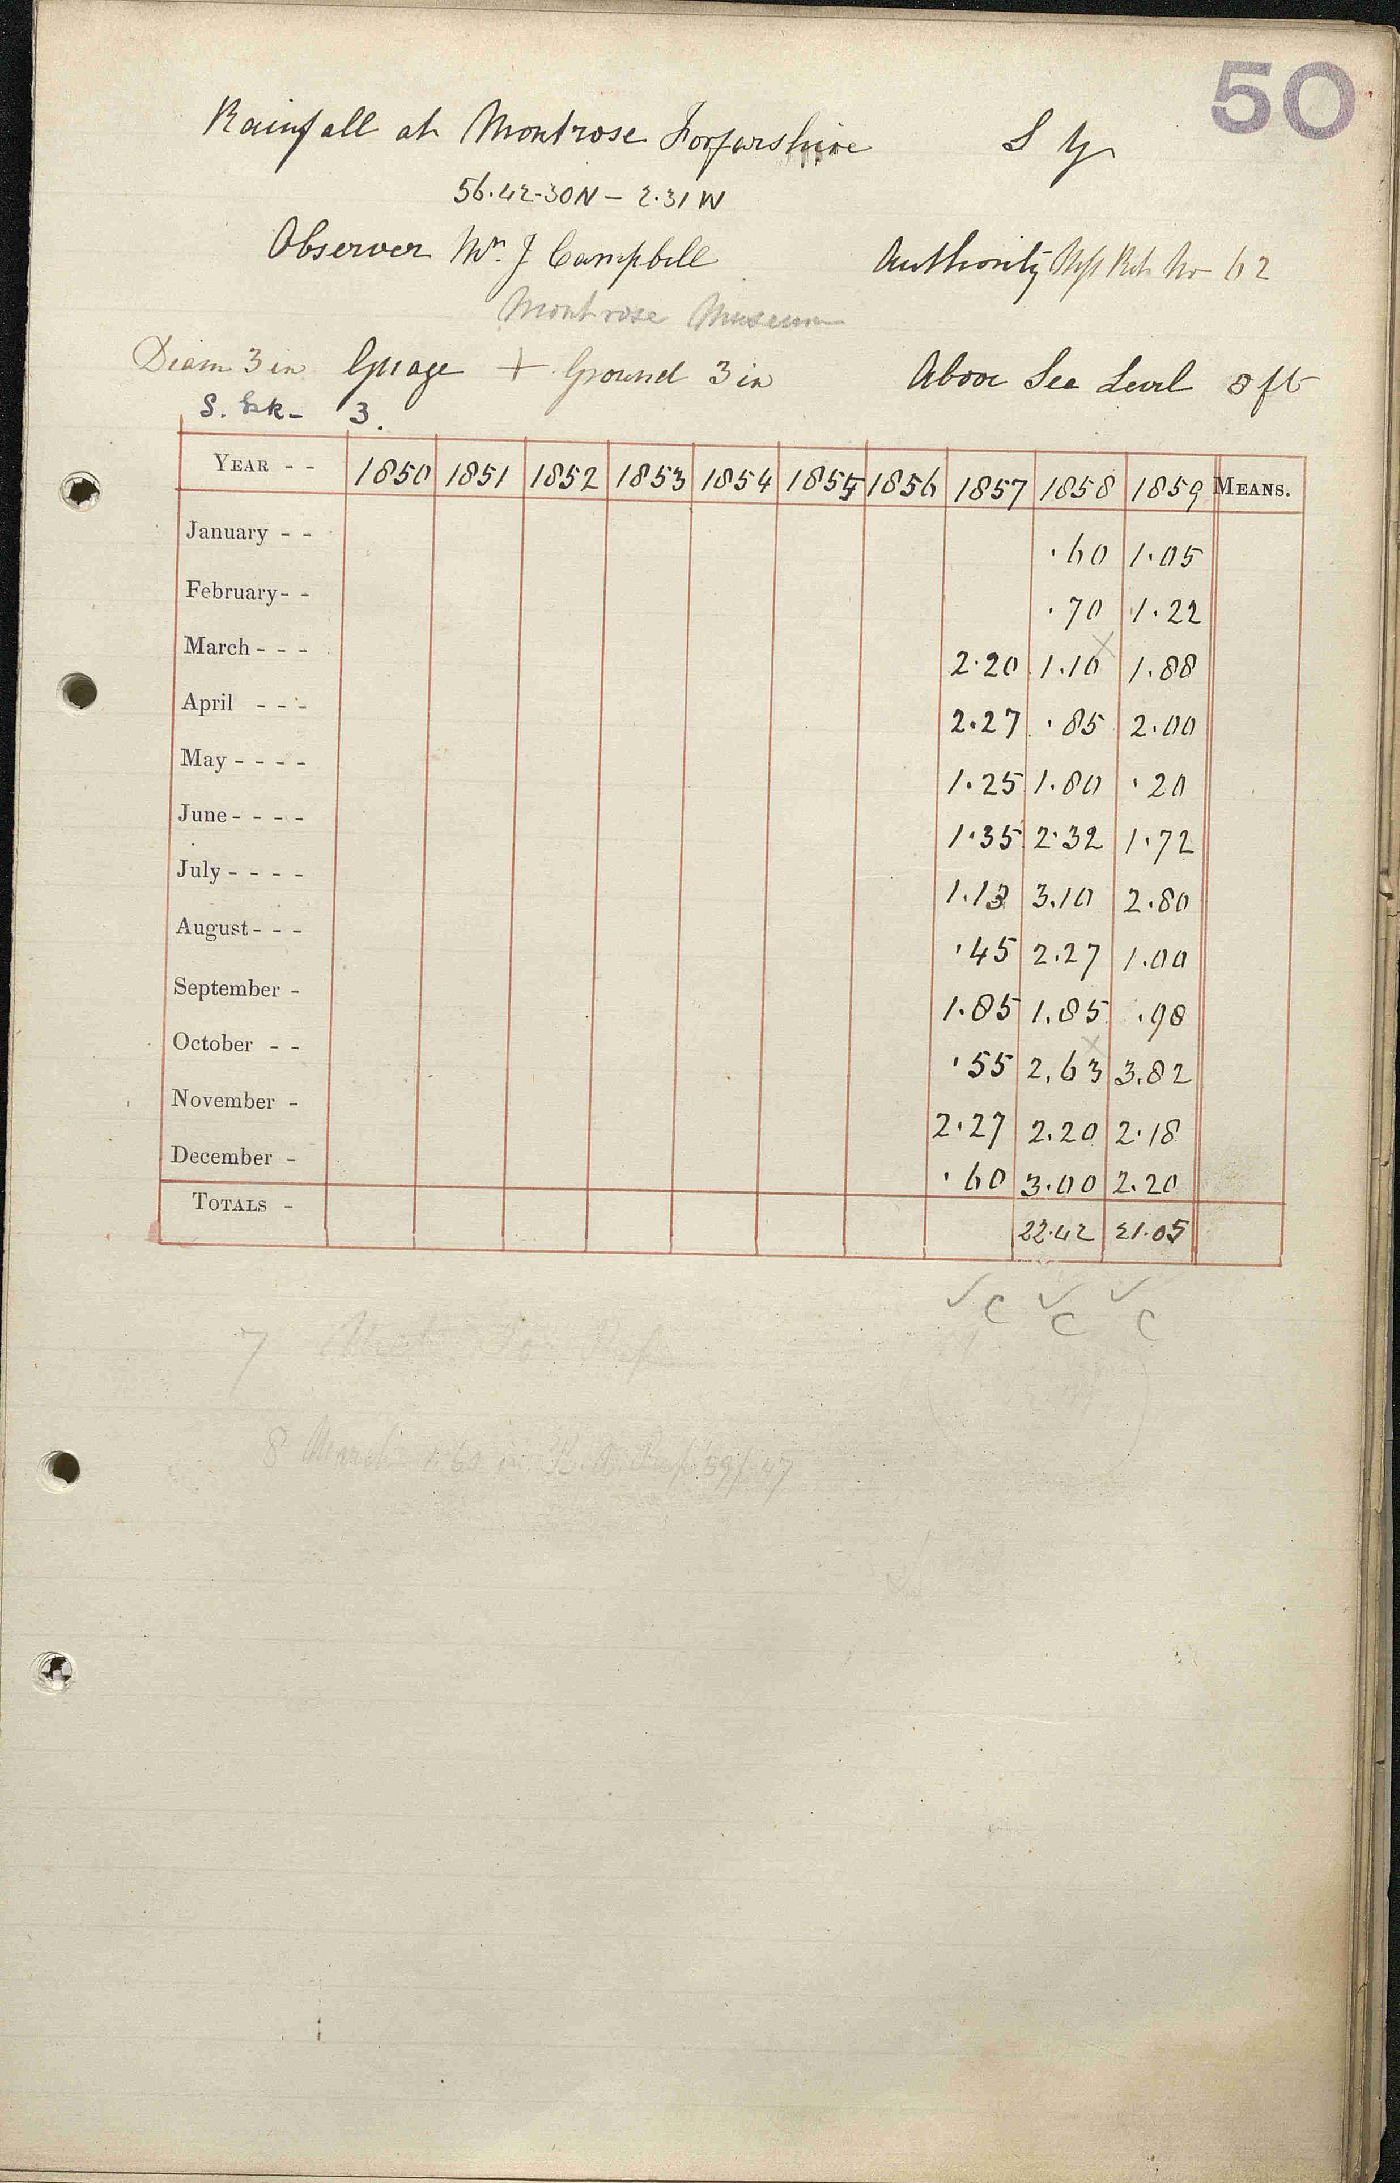 50
Rainfall at Montrose Forfarshire S Y
56.42-30N - 2.31W
Observer Mr. J Campbell Authority No 62
Montrose Museum
Diam 3 in Guage + Ground 3 in Above Sea Level 8 ft
3.
YEAR - - 1850 1851 1852 1853 1854 1855 1856 1857 1858 1859 MEANS.
January - - .60 1.05
February - - .70 1.22
March - - - 2.20 1.10 × 1.88
April - - - 2.27 .85 2.00
May - - - - 1.25 1.80 .20
June - - - - 1.35 2.32 1.72
July - - - - 1.13 3.10 2.80
August - - - .45 2.27 1.00
September - 1.85 1.85 .98
October - - .55 2.63 × 3.82
November - 2.27 2.20 2.18
December - .60 3.00 2.20
TOTALS - 22.42 21.05
✓ C ✓ C ✓ C
7
8 March 1.60 in